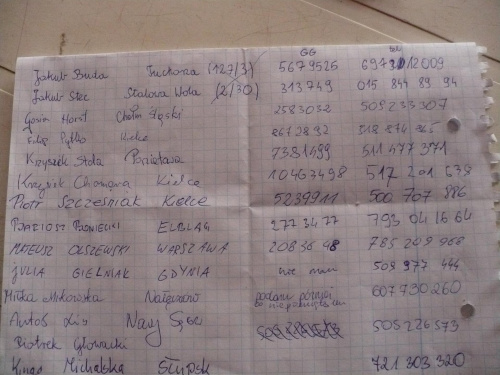 GG tel
Jakub Buda Tuchorza (127/3) 5679526 697 312009
Jakub Stec Stalowa Wola (2/30) 313749 015 844 89 94
Horst Chełm Śląski 2583032 509233307
Kielce 2672892
Krzysiek Stola Poniatowa 7381499 511 477 371
Kielce 10463498 517 201 639
Piotr Szcześniak Kielce 5239911 500 707 886
ELBLĄG 2773477 793 04 16 64
MATEUSZ OLSZEWSKI WARSZAWA 2083698 785 209 968
JULIA GIELNIAK GDYNIA nie mam 509 977 444
Mitka Mitkowska Nałęczów podam później 607 730 260
Antoś Lis Nowy Sącz 505 226 573
Piotrek Głowacki
Kinga Michalska Słupsk 721 303 320